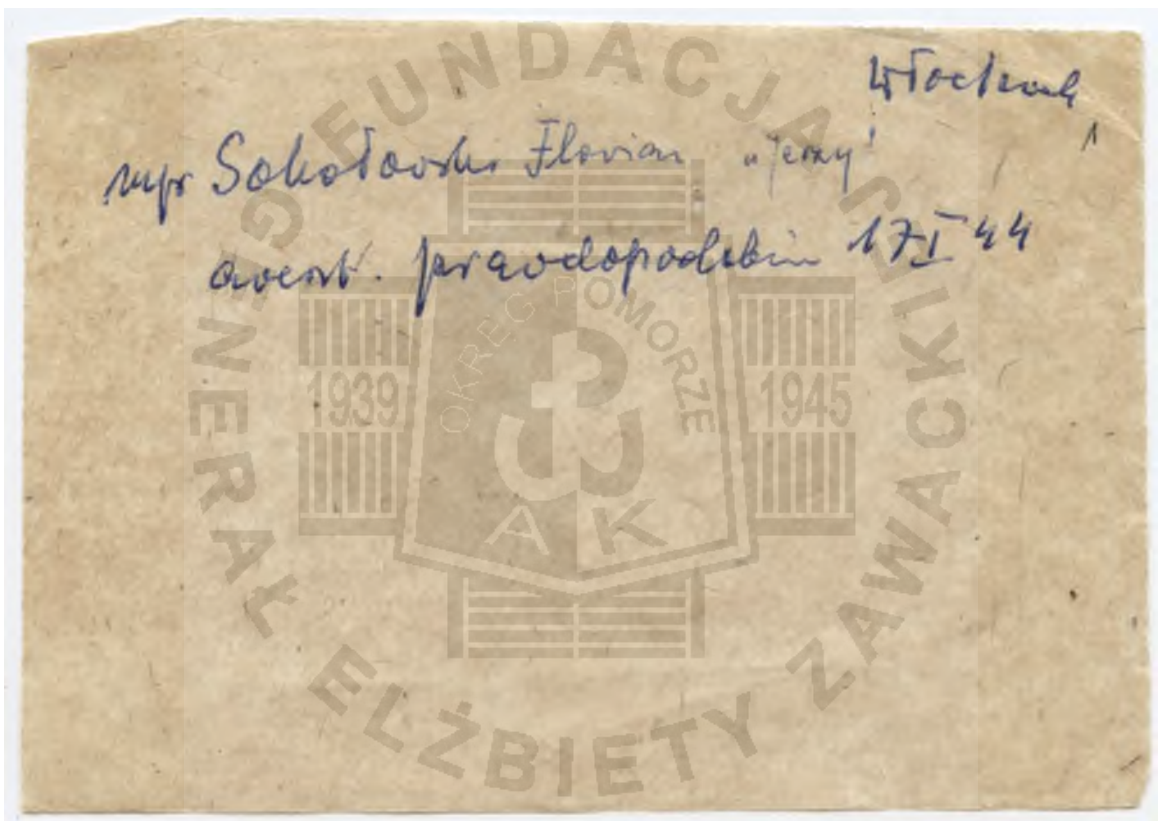 Włocławek
1
mjr Sokołowski Florian „Jerzy"
areszt. prawdopodobnie 17 I 44
FUNDACJA GENERAŁ ELŻBIETY ZAWACKIEJ
OKRĘG POMORZE
1939
1945
AK